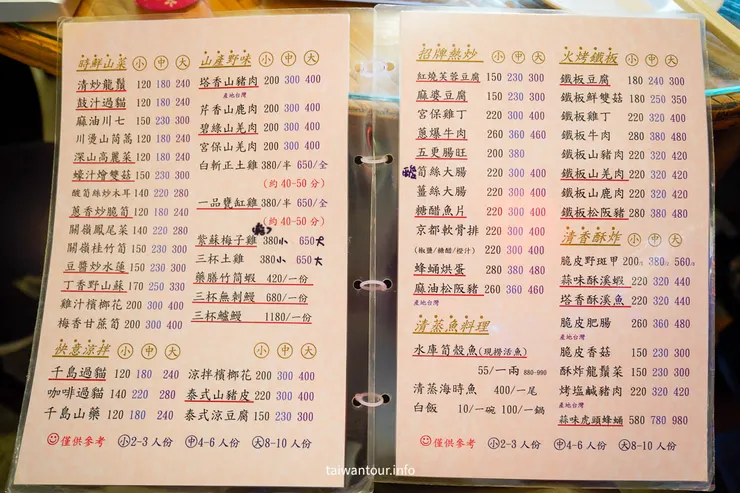 時鮮山菜 小 中 大
清炒龍鬚 120 180 240
鼓汁過貓 120 180 240
麻油川七 150 230 300
川燙山茼蒿 120 180 240
深山高麗菜 120 180 240
蠔汁燴雙菇 150 230 300
酸筍絲炒木耳 140 220 280
蔥香炒脆筍 120 180 240
關嶺鳳尾菜 150 230 300
關嶺桂竹筍 150 230 300
豆醬炒水蓮 150 230 300
丁香野山蘇 170 250 330
雞汁檳椰花 200 300 400
梅香甘蔗筍 200 300 400
山產野味 小 中 大
塔香山豬肉 200 300 400
產地台灣
芹香山鹿肉 200 300 400
碧綠山羌肉 200 300 400
宮保山羌肉 200 300 400
白斬正土雞 380/半 650/全
(約40-50分)
一品甕缸雞 380/半 650/全
(約40-50分)
紫蘇梅子雞 380小 650大
三杯土雞 380小 650大
藥膳竹筒蝦 420/一份
三杯無刺鰻 680/一份
三杯鱸鰻 1180/一份
快意涼拌 小 中 大
千島過貓 120 180 240
咖哩過貓 140 220 280
千島山藥 120 180 240
小 中 大
涼拌檳椰花 200 300 400
泰式山豬皮 200 300 400
泰式涼豆腐 150 230 300
僅供參考 小2-3人份 中4-6人份 大8-10人份
招牌熱炒 小 中 大
紅燒芙蓉豆腐 150 230 300
麻婆豆腐 150 230 300
宮保雞丁 220 300 400
蔥爆牛肉 260 360 460
五更腸旺 200 380
酸筍絲大腸 220 300 400
薑絲大腸 220 300 400
糖醋魚片 220 300 400
京都軟骨排 220 300 400
(椒鹽/糖醋/橙汁)
蜂蛹烘蛋 280 380 480
麻油松阪豬 260 360 460
產地台灣
清蒸魚料理
水庫筍殼魚(現撈活魚)
55/一兩 880-990
清蒸海時魚 400/一尾
白飯 10/一碗 100/一鍋
火烤鐵板 小 中 大
鐵板豆腐 180 240 300
鐵板鮮雙菇 180 250 350
鐵板雞丁 220 320 400
鐵板牛肉 280 380 480
鐵板山豬肉 220 320 420
鐵板山羌肉 220 320 420
鐵板山鹿肉 220 320 420
鐵板松阪豬 280 380 480
清香酥炸 小 中 大
脆皮野斑甲 200/3隻 380/6隻 560/9隻
蒜味酥溪蝦 220 320 440
塔香酥溪魚 220 320 440
脆皮肥腸 260 360 480
產地台灣
脆皮香菇 150 230 300
酥炸龍鬚菜 150 230 300
烤塩鹹豬肉 220 320 420
產地台灣
蒜味虎頭蜂蛹 580 780 980
僅供參考 小2-3人份 中4-6人份 大8-10人份
taiwantour.info